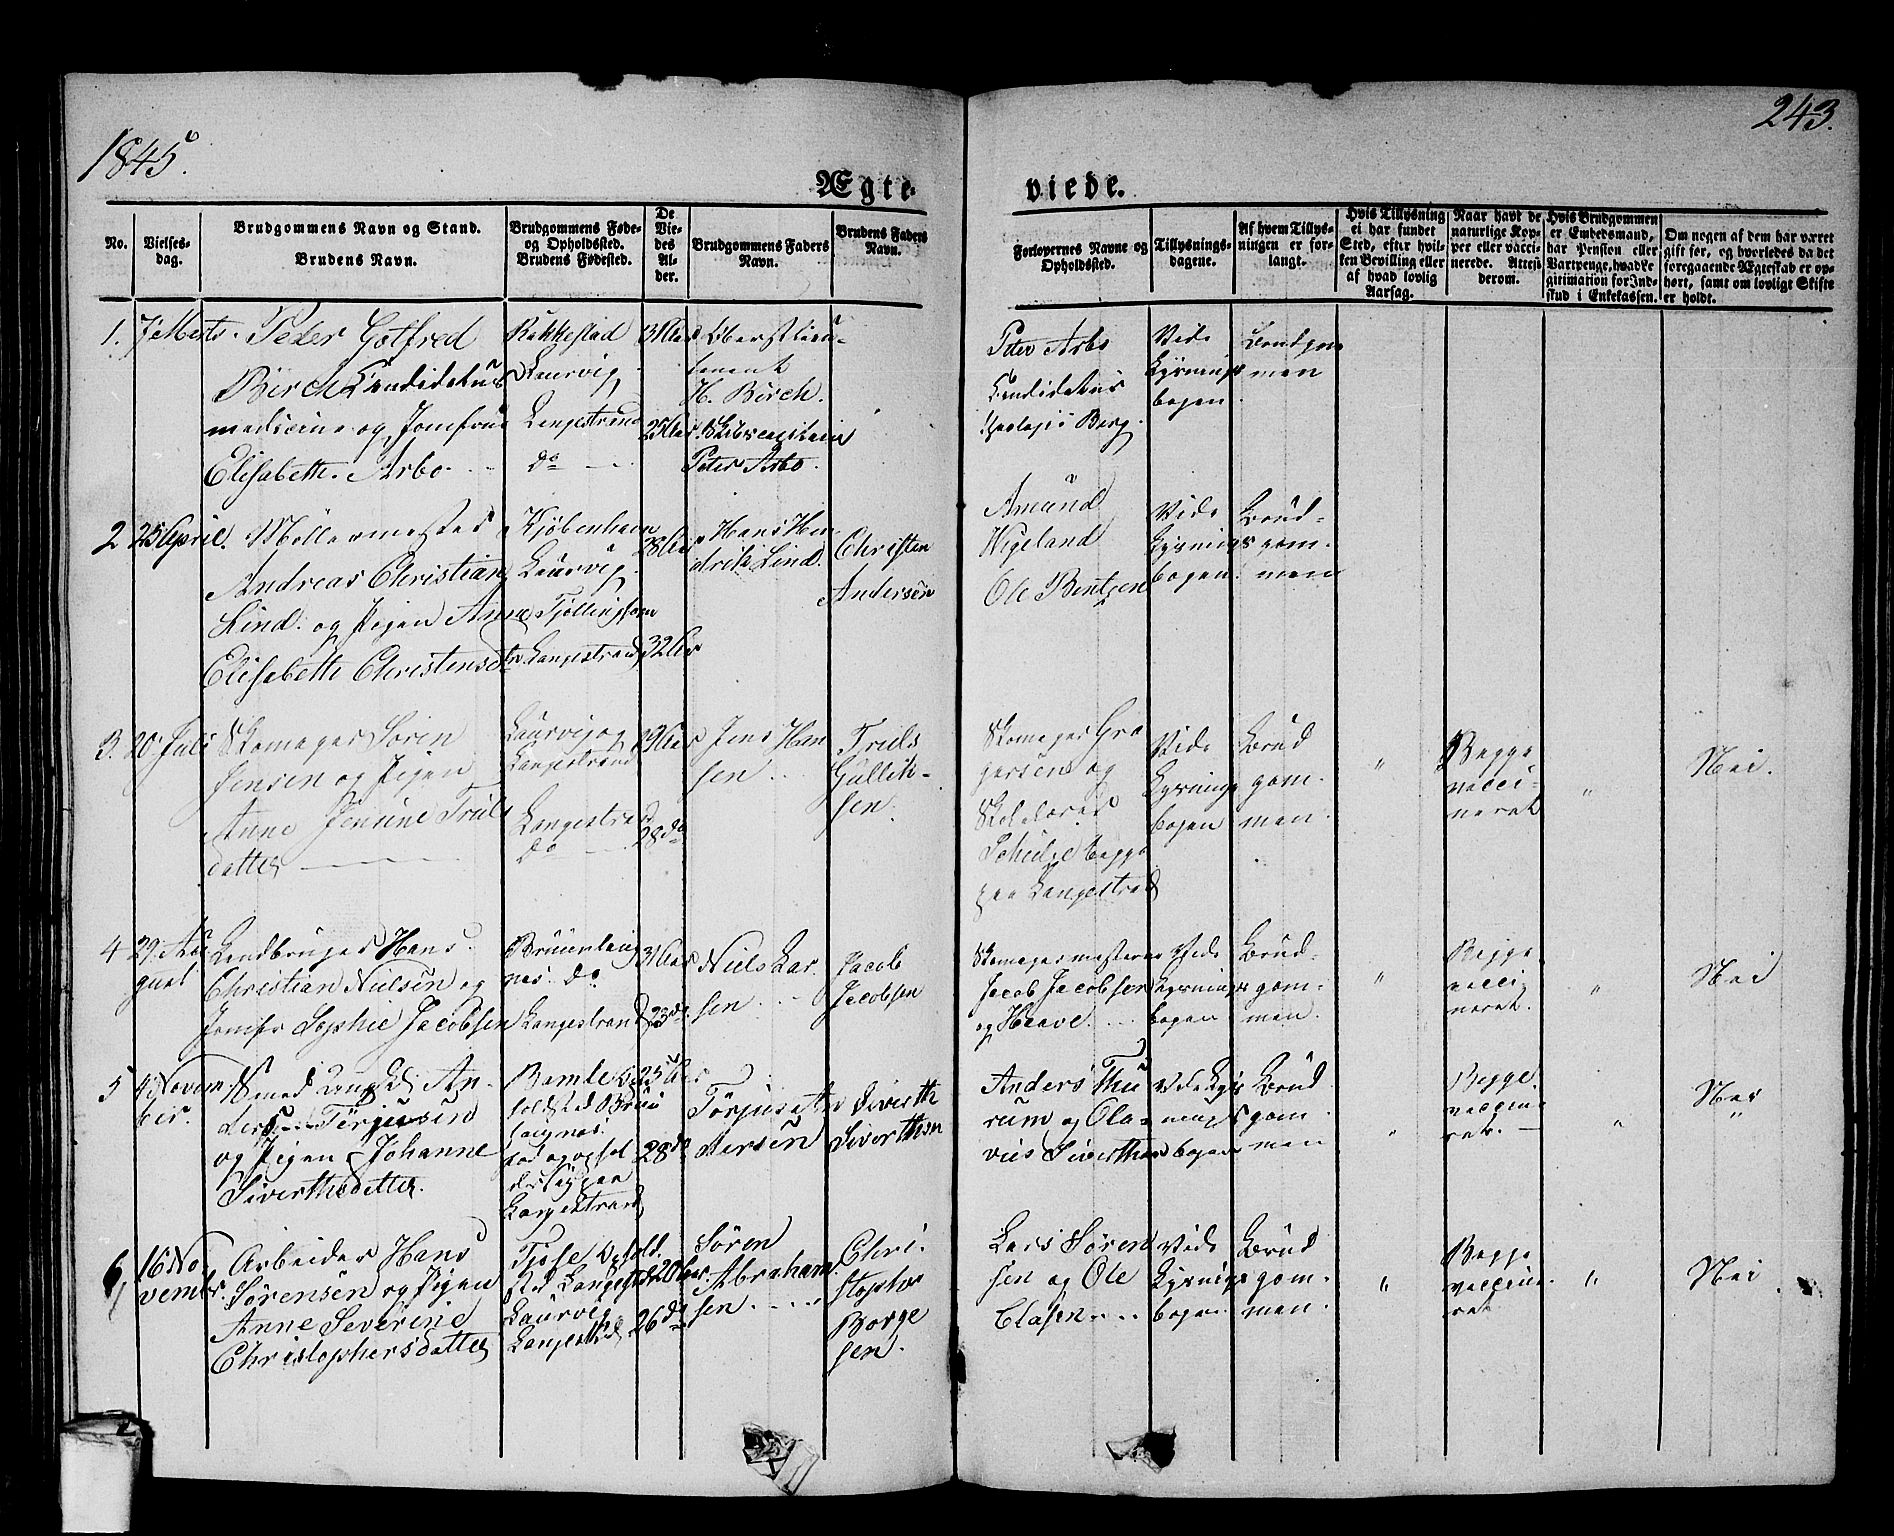 1845.
243.
Ægte-
viede.
No.
Vielses-
dag.
Brudgommens Navn og Stand.
Brudens Navn.
Brudgommens Føde-
og Opholdssted.
Brudens Fødested.
De
Vie-
des
Al-
der.
Brudgommens Faders
Navn.
Brudens Faders
Navn.
Forlovernes Navne og
Opholdssted.
Tillysnings-
dagene.
Af hvem Tillys-
ningen er for-
langt.
Hvis Tillysning
ei har fundet
Sted, efter hvil-
ken Bevilling eller
af hvad lovlig
Aarsag.
Naar havt de
naturlige Kop-
per eller vacci-
nerede. Attest
derom.
Hvis Brudgommen
er Embedsmand,
har Pension eller
Vartpenge, hvad Le-
gitimation for Ind-
skud i Enkekassen.
Om nogen af dem har været
gift før, og hvorledes da det
foregaaende Ægteskab er op-
hørt, samt om lovligt Skifte
er holdt.
1. 7 Marts.
Peder Gotfred
Birch Candidatus
medicine og Jomfrue
Elisabeth Arbo
Rakkestad
Laurvig
Langestrand
do
31 Aar
25 Aar
Oberstlieu-
tenant
H. Birch.
Skibscapitain
Peter Arbo.
Peter Arbo
Candidatus
Theologi i Berg.
Vide
Lysnings
bogen
Brudgom
men
2 25 April.
Møllermester
Andreas Christian
Lind. og Pigen Anne
Elisabeth Christensdtr
Kjøbenhavn
Laurvig
Tjøllingsogn
Langestrand
28 Aar
32 Aar
Hans Hen
drik Lind.
Christen
Andersen
Amund
Wigeland
Ole Bentzen
Vide
Lysnings
bogen.
Brud-
gom-
men
3. 20 Juli
Skomager Søren
Jensen og Pigen
Anne Jensine Truls
datter
Laurvig og
Langestrand
Langestrand
do
29 Aar
28 do
Jens Han
sen
Truls
Gullik-
sen.
Skomager Gre
gersen og
Schulze begge
paa Langestrand
Vide
Lysnings
bogen
Brud
gom-
men.
"
Begge
vacci-
neret
"
Nei.
4 29. Au
gust
Landbruger Hans
Christian Nielsen og
Jomfr Sophie Jacobsen
do
Langestrand
31 Aar
23 do
Niels Lar
sen
Jacob
Jacobsen
Skomagermesterne
Jacob Jacobsen
og Haave.
Vide
Lysnings
bogen
Brud-
gom-
men.
"
Begge
vacci
neret.
"
Nei
5 4 Novem
ber.
Smed An-
ders Tørjusen
og Pigen Johanne
Siverthsdatter.
Bamle Op
Langestrand
25 Aar
28 do
Tørjus An
dersen
Siverth
Siverthsen
Anders Thu
rum og Ola-
vus Siverthsen
Vide Lys
nings
bogen
Brud
gom
men
"
Begge
vaccine
ret.
"
Nei
6 16 No
vember.
Arbeider Hans
Sørensen og Pigen
Anne Severine
Christophersdatter
Tjøse Ophold.
sted Langestrd
Laurvig
Langestrd
20 Aar.
26 do
Søren
Abraham
sen
Chri-
stopher
Borge
sen.
Lars Søren
sen og Ole
Clasen
Vide
Lysnings
bogen
Brud
gom-
men.
"
Begge
vaccine
ret
"
Nei